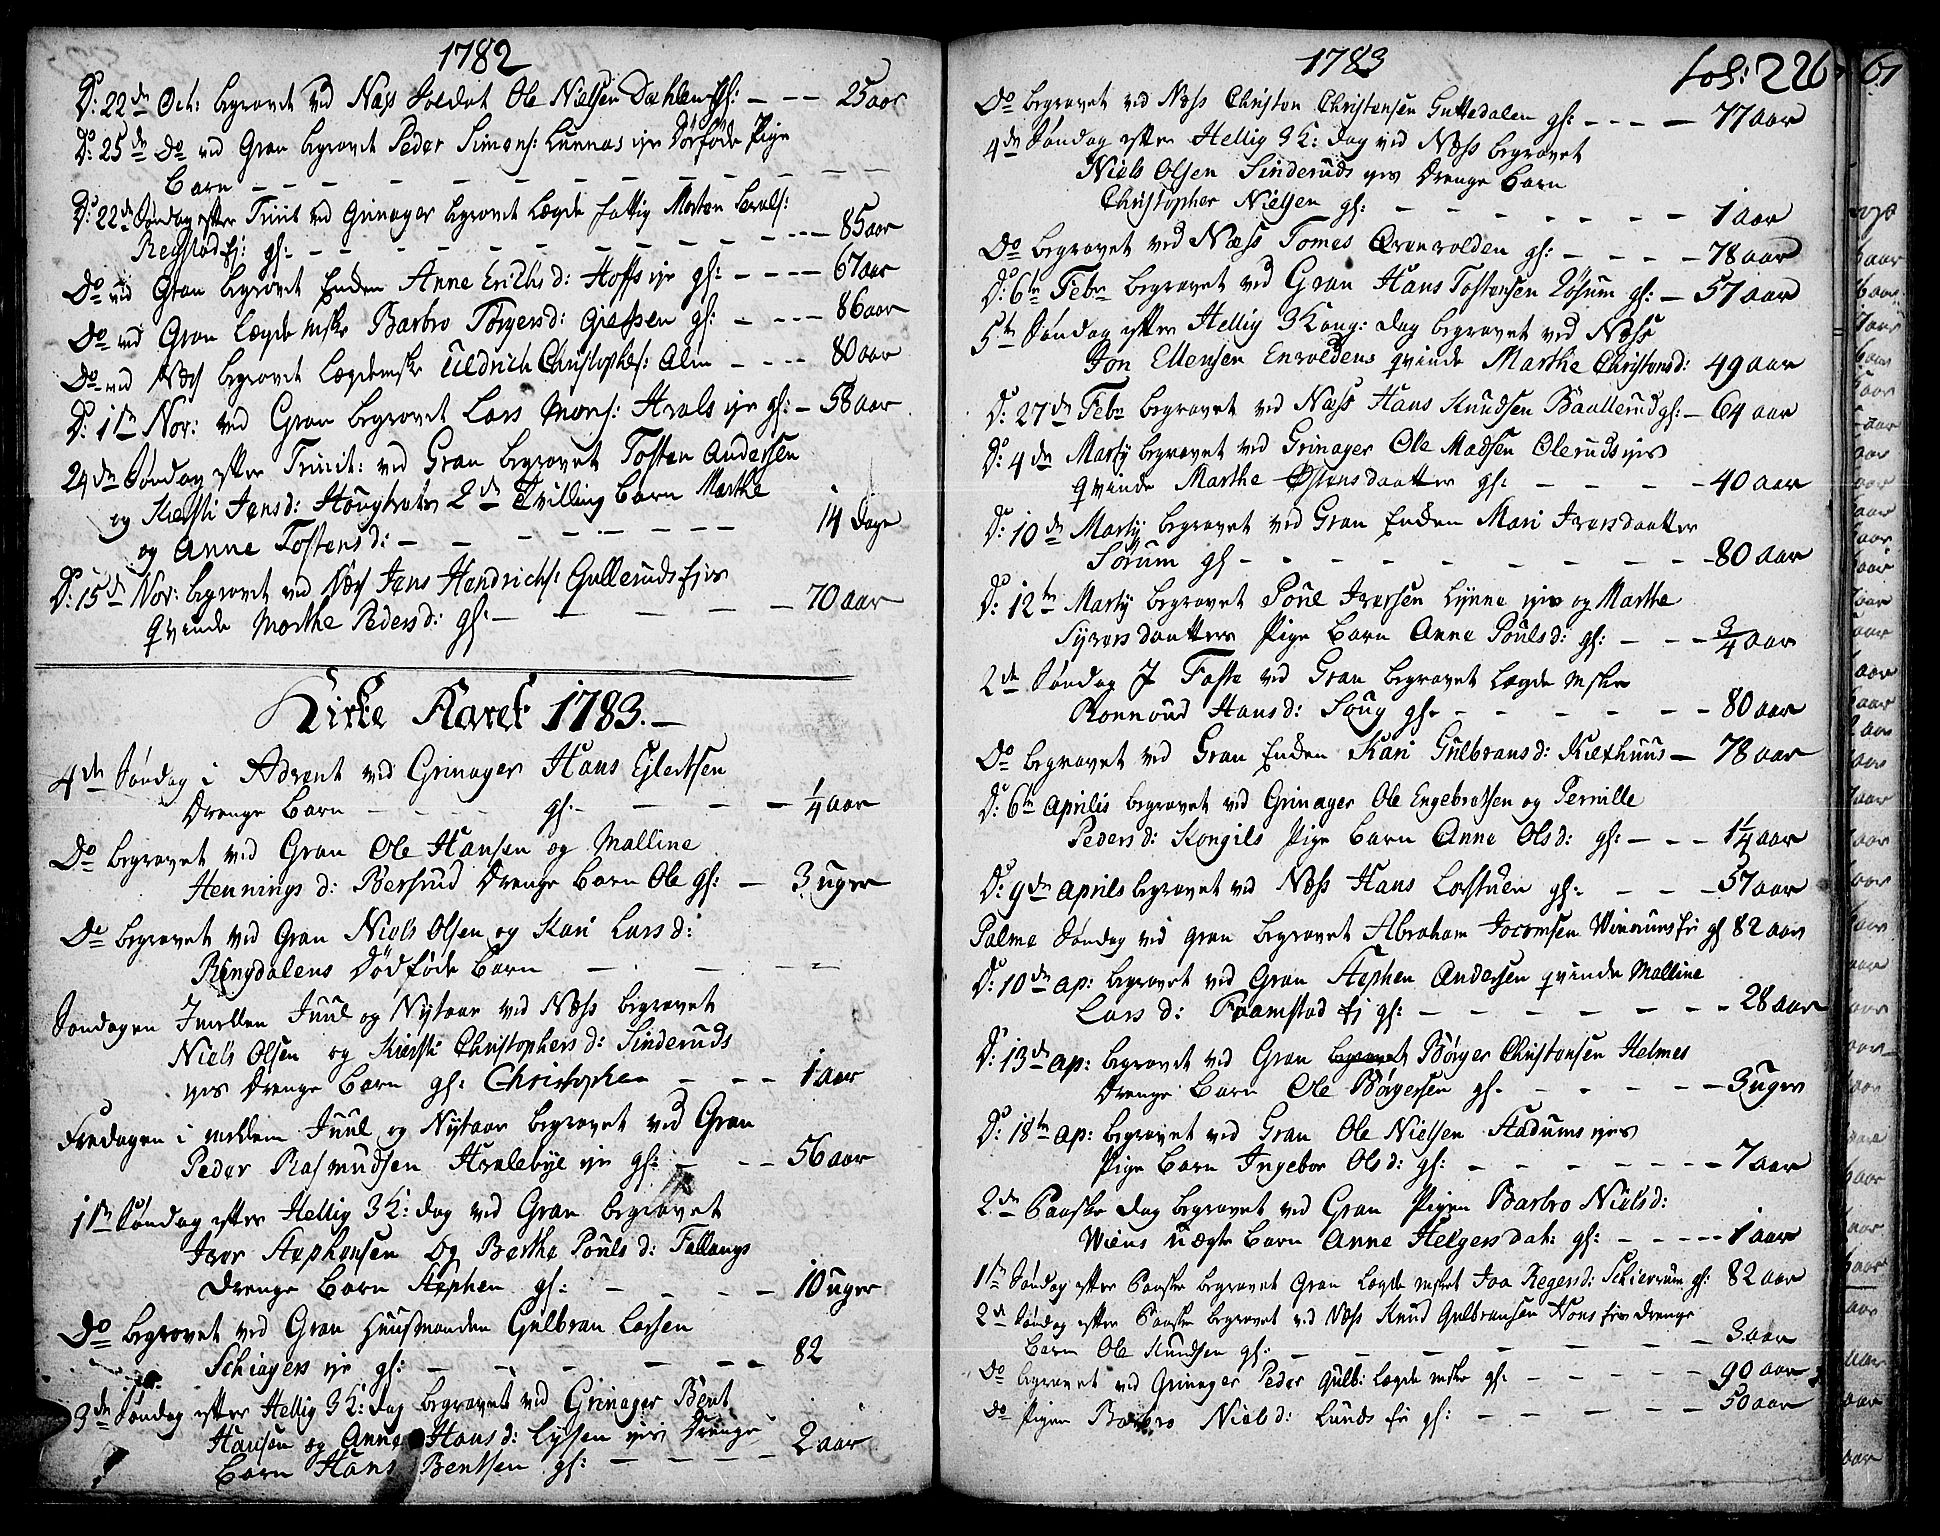 1782
D: 22de Oct: begravet ved Næss Soldat Ole Nielsen Dæhlen gl: - - - 25 aar
D: 25de Do ved Gran begravet Peder Simens: Lunnas eje Dödföde Pige
Barn - - - - - - - - - -
D: 22de Söndag efter Trinit ved Grinager begravet Lægds fattig Morten
Regstad ej: gl: - - - - - - - 85 aar
Do ved Gran begravet Enken Anne Erichsd: Hoffs eje gl: - - - 67 aar
Do ved Gran Lægds mske Barbro Törgersd: gl: - - - 86 aar
Do ved Næs begravet Lægdemske Uldrich Christophs: Alm - - - 80 aar
D: 1ste Nov: ved Gran begravet Lars Mons: Hvals eje gl: - 58 aar
24de Söndag efter Trinit: ved Gran begravet Tosten Andersen
og Kiersti Jensd: 2de Tvilling Barn Marthe
og Anne Tostensd: - - - - - - - 14 Dage
D: 15de Nov: begravet ved Næs Jens Hendrichs: Gulleruds ejes
qvinde Marthe Pedersd: gl: - - - - - 70 aar
Kirke Aaret 1783. -
4de Söndag i Advent ved Grinager Hans Ejlertsen
Drenge Barn - - - - gl: - - - - 1/4 aar
Do begravet ved Gran Ole Hansen og Malline
Hennings d: Bersrud Drenge Barn Ole gl: - 3 uger
Do begravet ved Gran Niels Olsen og Kari Lars d:
Ringdalens Dödföde Barn - - - -
Söndagen Imellem Juul og Nytaar ved Næss begravet
Niels Olsen og Kiersti Christophers d: Sinderuds
ejes Drenge Barn gl: Christopher - - - 1 aar
Fredagen i mellem Juul og Nytaar begravet ved Gran
Peder Rasmudsen Hvalebye eje gl: - - - 56 aar
1ste Söndag efter Hellig 3 K: dag ved Gran begravet
Iver Stephensen Og Berthe Pouls d: Fallangs
Drenge Barn Stephen gl: - - - - 10 uger
Do begravet ved Gran Huusmanden Gulbran Larsen
Schiagers eje gl: - - - - - - 82
3de Söndag efter Hellig 3 K: dag begravet ved Grinager Bent
Hansen og Anne Hans d: Lysen ejes Drenge
Barn Hans Bentsen gl: - - - - 2 aar
1783
fol: 226
Do begravet ved Næss Christen Christensen Guttedalen gl: - - - - 77 aar
4de Söndag efter Hellig 3 K: Dag ved Næss begravet
Niels Olsen Sinderuds ejes Drenge Barn
Christopher Nielsen gl: - - - - - - - 1 aar
Do begravet ved Næss Tomes gl: - - - - 78 aar
D: 6te Febr begravet ved Gran Hans Tostensen Lösum gl: - 57 aar
5te Söndag efter Hellig 3 Kong: Dag begravet ved Næss
Jon Ellensen Envoldens qvinde Marthe Christensd: 49 aar
D: 27de Febr begravet ved Næss Hans Knudsen Baallerud gl: - 64 aar
D: 4de Marty begravet ved Grinager Ole Madsen Oleruds ejes
qvinde Marthe Östensdaatter gl: - - - - - 40 aar
D: 10de Marty begravet ved Gran Enken Mari Iversdaatter
Sörum gl - - - - - - - - - 80 aar
D: 12te Marty begravet Poul Iversen Lynne ejes og Marthe
Syversdaatters Pige Barn Anne Poulsd: gl: - - - 3/4 aar
2de Söndag J Faste ved Gran begravet Lægds mske
Ronnoud Hansd: Soug gl. - - - - - - 80 aar
Do begravet ved Gran Enken Kari Gulbransd: Kiexhuus - 78 aar
D: 6te Aprilis begravet ved Grinager Ole Engebretsen og Pernille
Pedersd: Kongils Pige Barn Anne Olsd: gl: - - - 1 1/4 aar
D: 9de Aprils begravet ved Næss Hans Lostuen gl: - - - 57 aar
Palme Söndag ved gran begravet Abraham Jocomsen ej gl 82 aar
D: 10de ap: begravet ved Gran Stephen Andersen qvinde Malline
Lars d: Framstad ej gl: - - - - - - - 28 aar
D: 13de ap: begravet ved Gran begravet Börger Christensen Helmes
Drenge Barn Ole Börgersen gl. - - - - - 3 uger
D: 18te ap: begravet ved Gran Ole Nielsen Stadums ejes
Pige Barn Ingebor Olsd: gl: - - - - - - 7 aar
2de Paaske Dag begravet ved Gran Pigen Barbro Nielsd:
Wiens uægte Barn Anne Helgers dat: gl: - - - - - 1 aar
1ste Söndag efter Paaske begravet Gran Lægds msket Joa Regersd: gl: 82 aar
2de Söndag efter Paaske begravet ved Næss Knud Gulbransen Hons ejes Drenge
Barn Ole Knudsen gl: - - - - - - - - 3 aar
Do begravet ved Grinager Peder Gulb: Lægds mske gl: - - - - - 90 aar
Do Pigen Barbro Nielsd: Lunds ej gl: - - - - - 50 aar